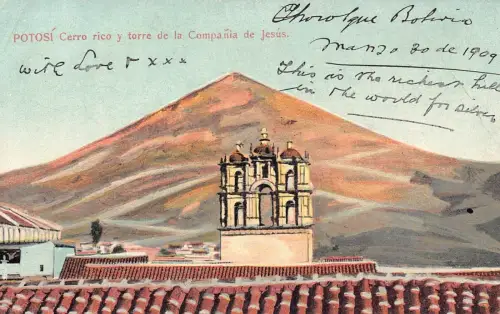 POTOSÍ Cerro rico y torre de la Compañia de Jesús.
with Love & xxx
Bolivia
Marzo 30 de 1909
This is the richest hill
in the world for silver